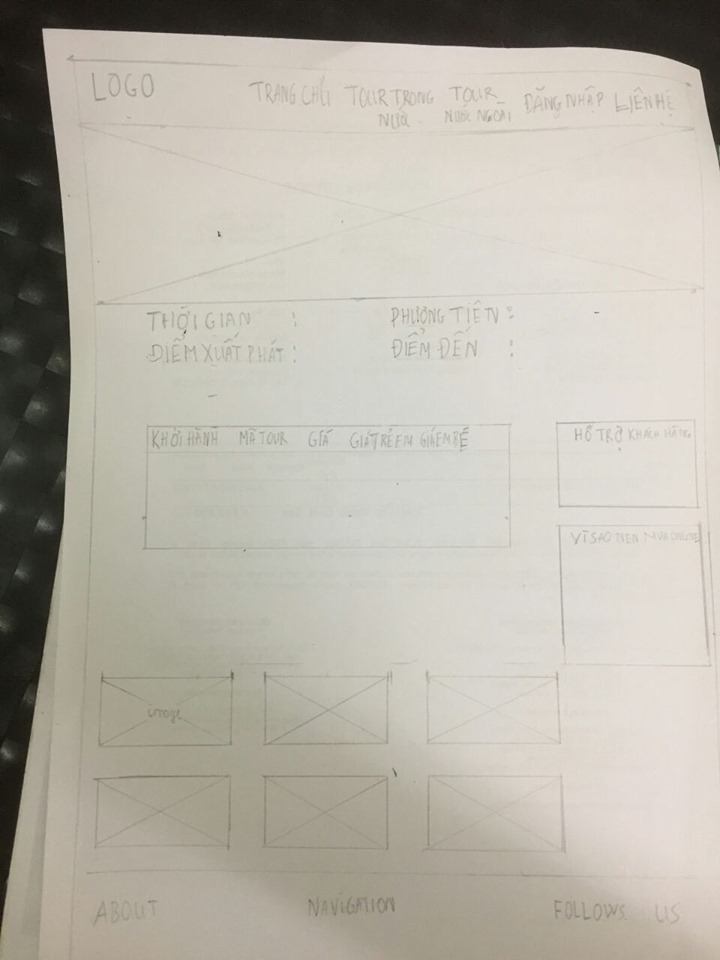 LOGO
TRANG CHỦ TOUR TRONG NƯỚC TOUR NƯỚC NGOÀI ĐĂNG NHẬP LIÊN HỆ
THỜI GIAN : PHƯƠNG TIỆN :
ĐIỂM XUẤT PHÁT : ĐIỂM ĐẾN :
KHỞI HÀNH MÃ TOUR GIÁ GIÁ TRẺ EM GIÁ EM BÉ
HỖ TRỢ KHÁCH HÀNG
VÌ SAO NÊN MUA ONLINE
image
ABOUT NAVIGATION FOLLOWS US